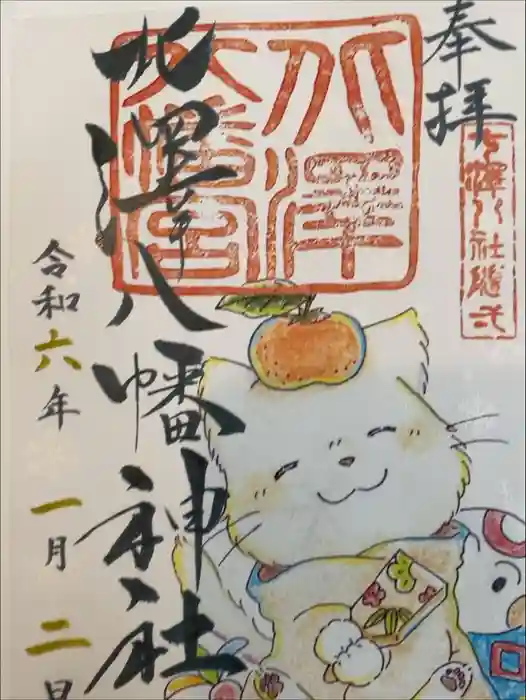 奉拝
七澤八社随弌
北澤
八幡宮
北澤八幡神社
令和六年 一月 二日